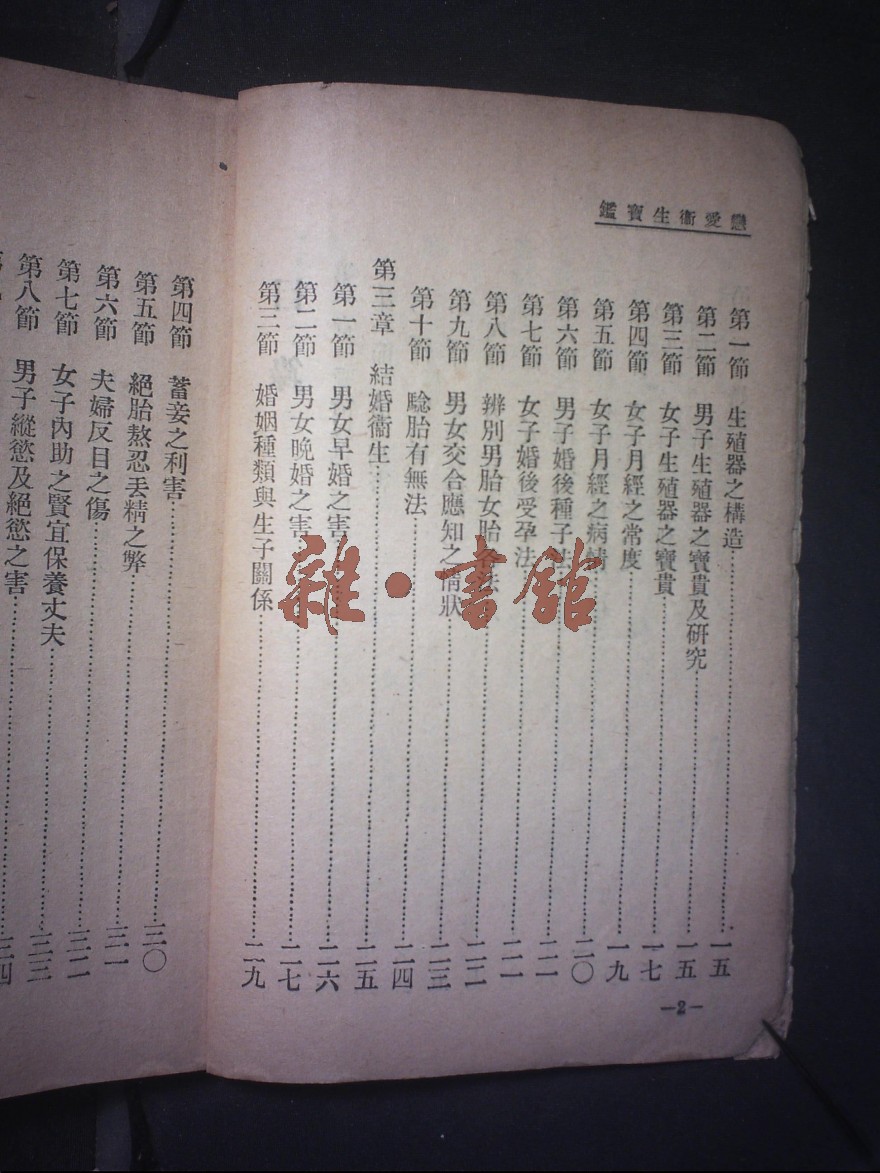 戀愛衞生寶鑑
第一節 生殖器之構造 一五
第二節 男子生殖器之寶貴及研究 一五
第三節 女子生殖器之寶貴 一七
第四節 女子月經之常度 一九
第五節 女子月經之病情 二〇
第六節 男子婚後種子法 二一
第七節 女子婚後受孕法 二二
第八節 辨別男胎女胎各法 二二
第九節 男女交合應知之情狀 二三
第十節 驗胎有無法 二四
第三章 結婚衞生 二五
第一節 男女早婚之害 二六
第二節 男女晚婚之害 二七
第三節 婚姻種類與生子關係 二九
—2—
第四節 蓄妾之利害 三〇
第五節 絕胎熬忍丟精之弊 三一
第六節 夫婦反目之傷 三二
第七節 女子內助之賢宜保養丈夫 三三
第八節 男子縱慾及絕慾之害 三四
雜·書館